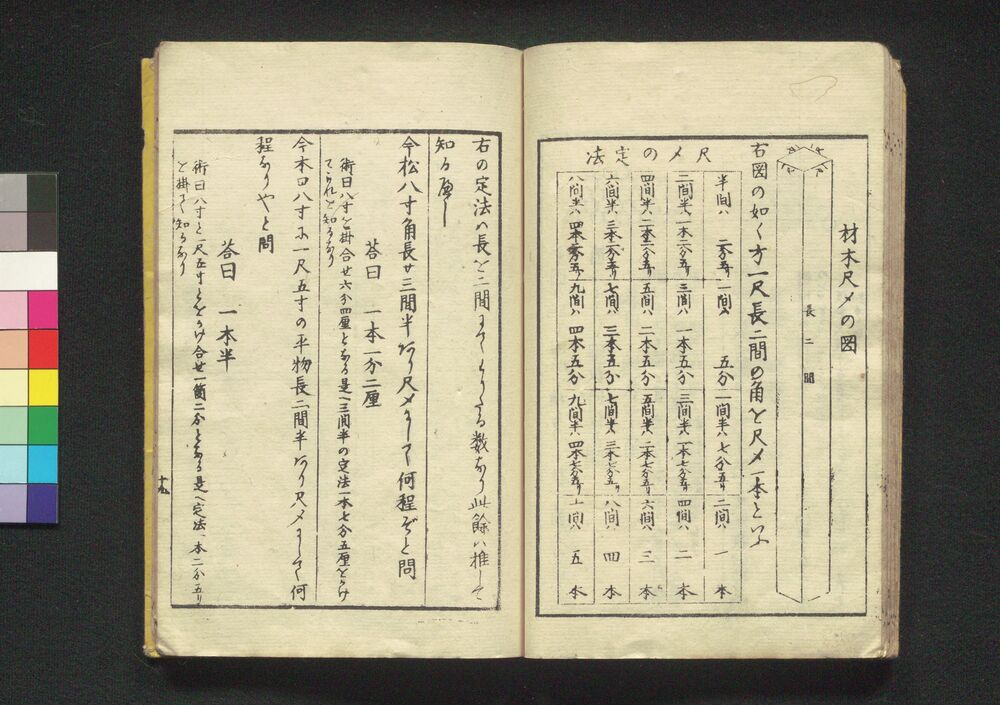 材木尺〆の図
長二間
右図の如く方一尺長二間の角を尺〆一本といふ
尺〆の定法
半間ハ 二分五リ
一間ハ 五分
一間半ハ 七分五リ
二間ハ 一本
二間半ハ 一本二分五リ
三間ハ 一本五分
三間半ハ 一本七分五リ
四間ハ 二本
四間半ハ 二本二分五リ
五間ハ 二本五分
五間半ハ 二本七分五リ
六間ハ 三本
六間半ハ 三本二分五リ
七間ハ 三本五分
七間半ハ 三本七分五リ
八間ハ 四本
八間半ハ 四本二分五リ
九間ハ 四本五分
九間半ハ 四本七分五リ
十間ハ 五本
右の定法ハ長を二間にてわりたる数なり此餘ハ推して
知るべし
今松八寸角長サ三間半あり尺〆にして何程ぞと問
荅曰 一本一分二厘
術曰八寸を掛合せ六分四厘となる是へ三間半の定法一本七分五厘をかけ
てこれを知るなり
今木口八寸に一尺五寸の平物長二間半あり尺〆にして何
程なりやと問
荅曰 一本半
術曰八寸と一尺五寸とをかけ合せ一箇二分となる是へ定法一本二分五リ
を掛て知るなり
十九